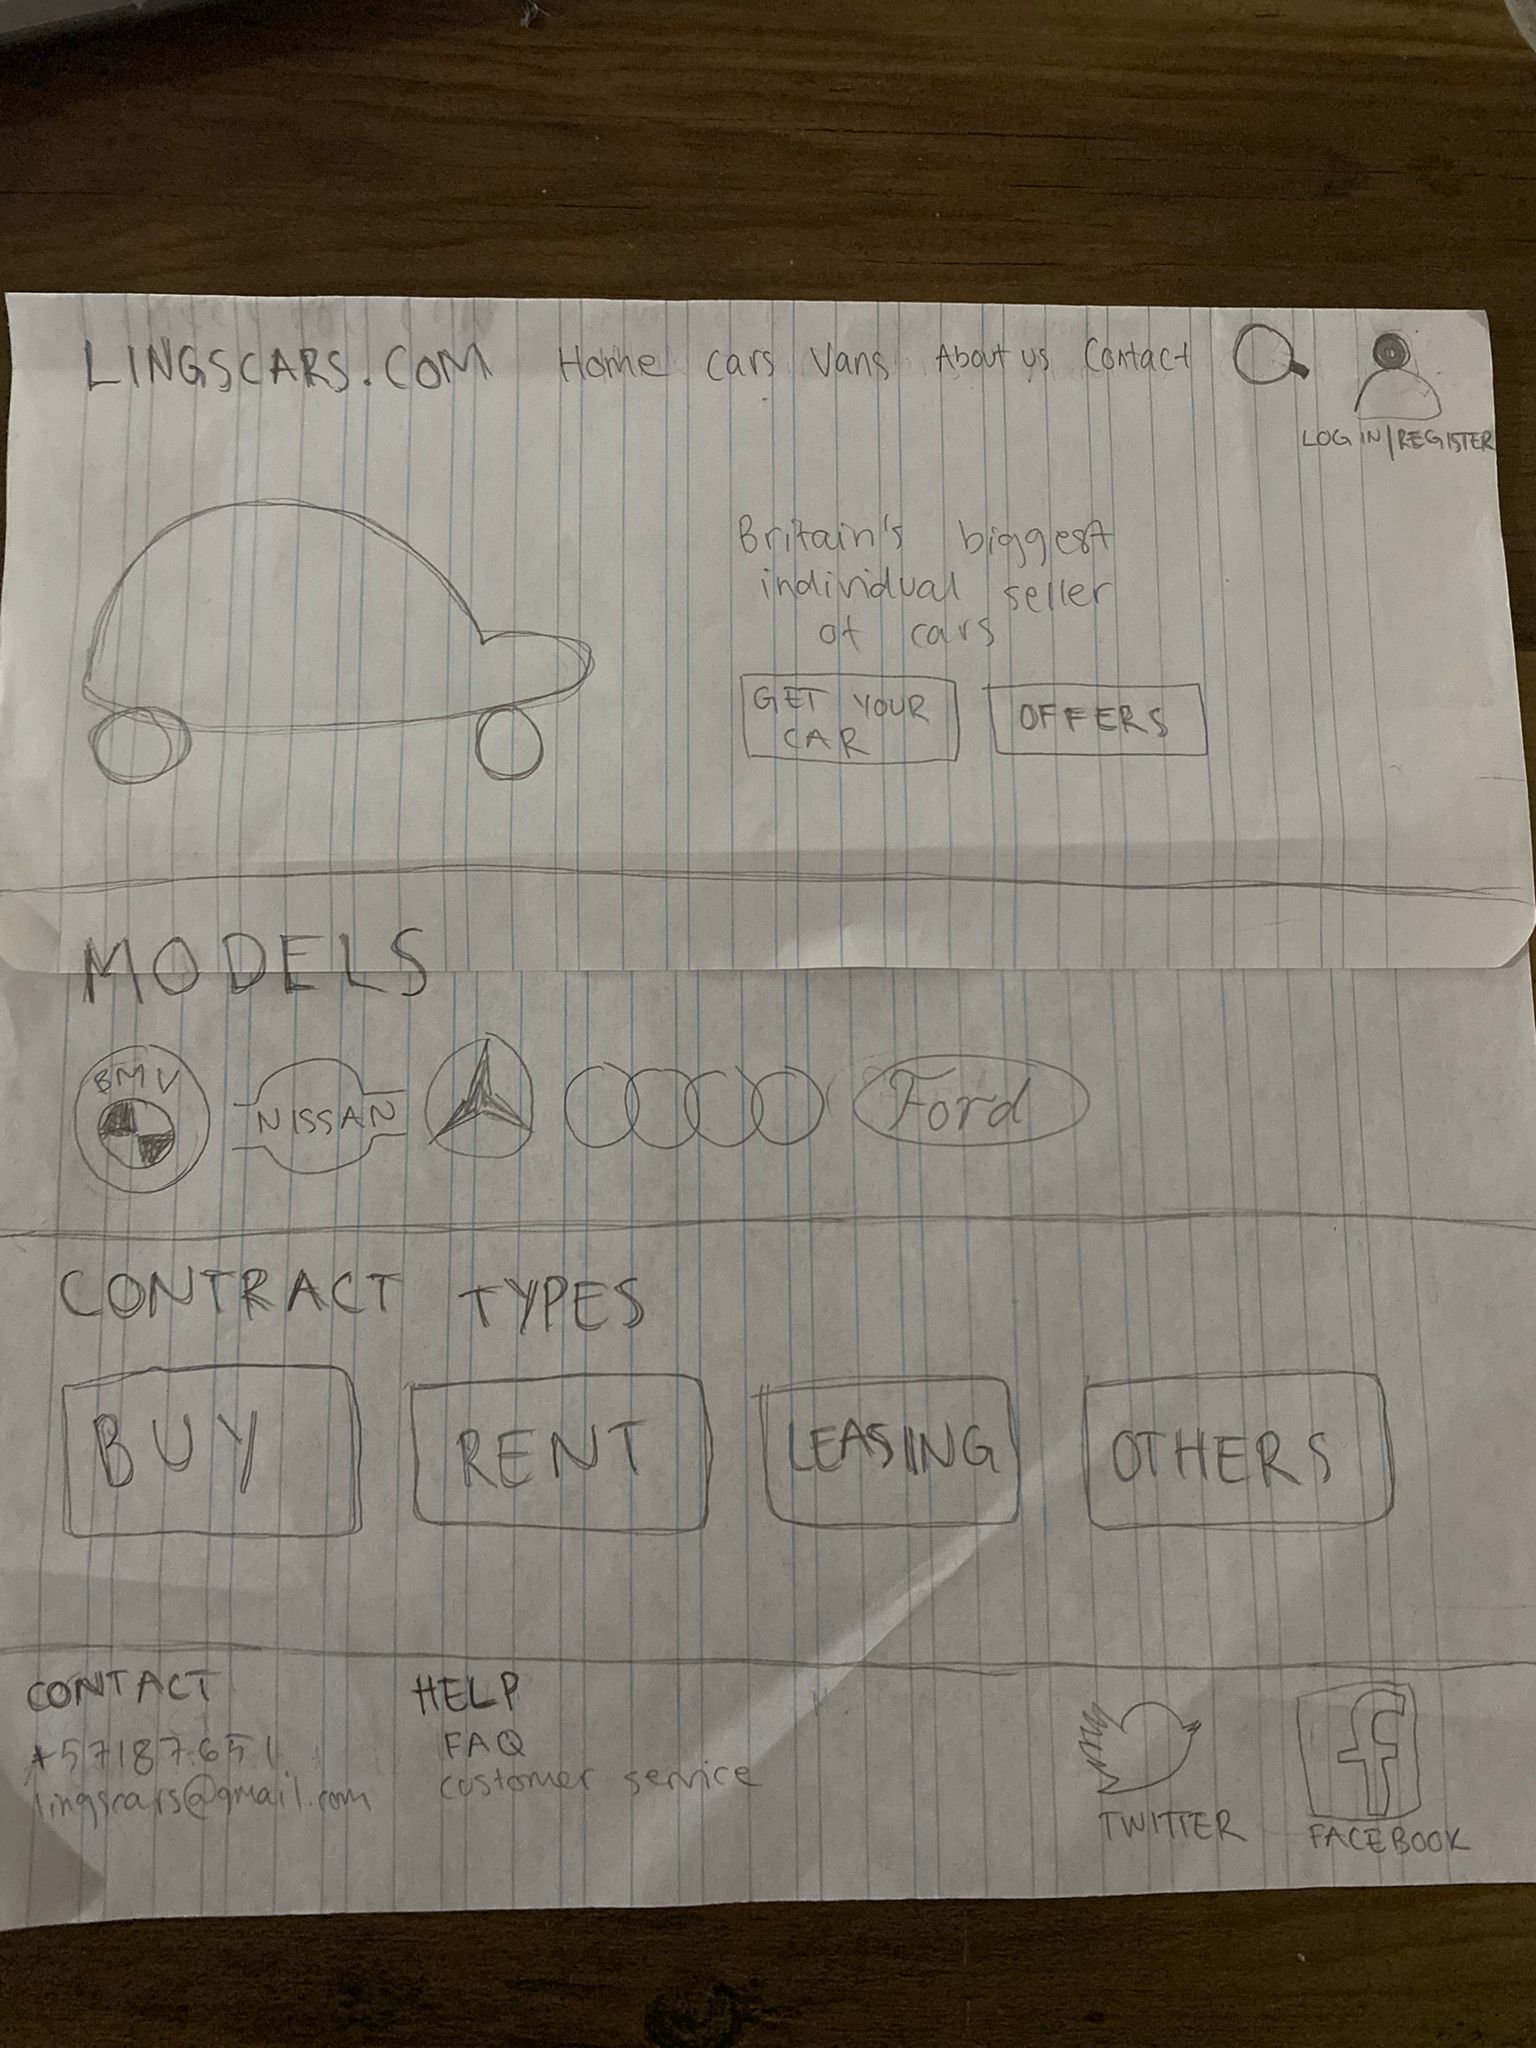 LINGSCARS.COM Home Cars Vans About us Contact
LOG IN/REGISTER
Britain's biggest
individual seller
of cars
GET YOUR
CAR
OFFERS
MODELS
BMV
NISSAN
Ford
CONTRACT TYPES
BUY RENT LEASING OTHERS
CONTACT
lingscars@gmail.com
HELP
FAQ
customer service
TWITTER
FACEBOOK